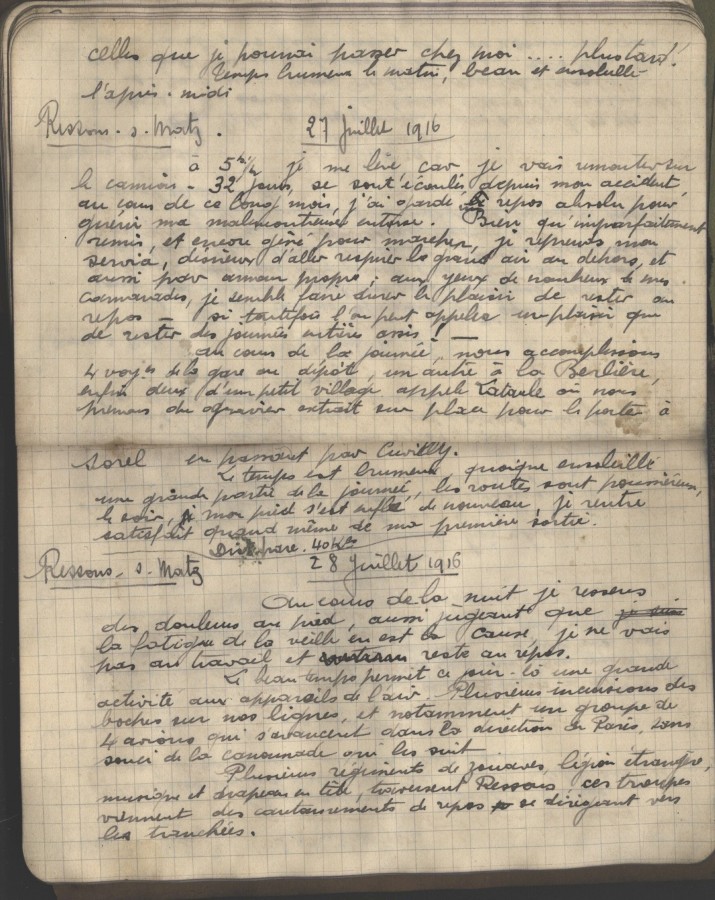 celles que je pourrai passer chez moi .... plus tard!
Temps brumeux le matin, beau et ensoleillé
l'après-midi
Ressons-s-Matz. 27 Juillet 1916
à 5h½ je me lève car je vais remonter sur
le camion - 32 jours, se sont écoulés depuis mon accident,
au cours de ce long mois, j'ai gardé le repos absolu pour
guérir ma malencontreuse entorse. Bien qu'imparfaitement
remis, et encore gêné pour marcher, je reprends mon
service, désireux d'aller respirer le grand air au dehors, et
aussi par amour propre; aux yeux de nombreux de mes
camarades, je semble faire durer le plaisir de rester au
repos - si toutefois l'on peut appeler un plaisir que
de rester des journées entières assis! -
Au cours de la journée, nous accomplissons
4 voyes de la gare au dépôt, un autre à la Berlière,
enfin deux d'un petit village appelé Lataule où nous
prenons du gravier extrait sur place pour le porter à
Sorel en passant par Cuvilly.
Le temps est brumeux, quoique ensoleillé
une grande partie de la journée, les routes sont poussiéreuses,
le soir, mon pied s'est enflé de nouveau, je rentre
satisfait quand même de ma première sortie.
Dist. parc. 40 Kes
Ressons-s-Matz 28 Juillet 1916
Au cours de la nuit je ressens
des douleurs au pied, aussi jugeant que je suis
la fatigue de la veille en est la cause, je ne vais
pas au travail et reste au repos.
Le beau temps permit ce jour-là une grande
activité aux appareils de l'air. Plusieurs incursions des
boches sur nos lignes, et notamment un groupe de
4 avions qui s'avancent dans la direction de Paris, sans
souci de la canonnade qui les suit
Plusieurs régiments de zouaves, légion étrangère,
musique et drapeau en tête, traversent Ressons, ces troupes
viennent des cantonnements de repos se dirigeant vers
les tranchées.